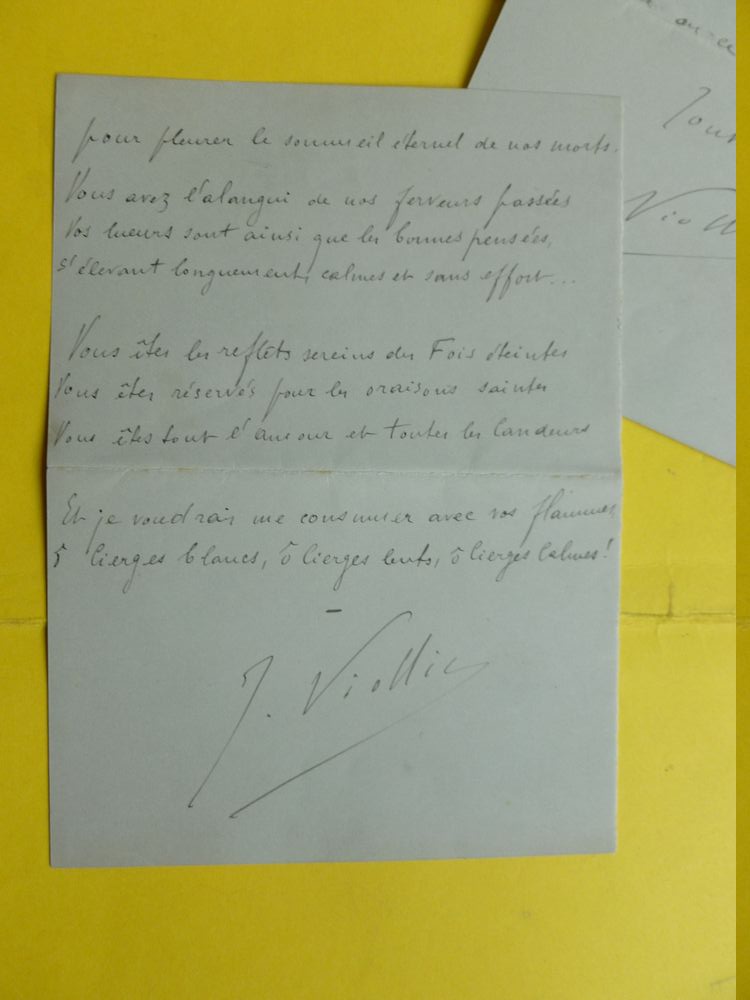 pour pleurer le sommeil éternel de nos morts.
Vous avez l'alangui de nos ferveurs passées
Vos lueurs sont ainsi que les bonnes pensées,
s'élevant longuement, calmes et sans effort...
Vous êtes les reflets sereins des Fois éteintes
Vous êtes réservés pour les oraisons saintes
Vous êtes tout l'amour et toutes les Candeurs
Et je voudrais me consumer avec vos flammes
ô Cierges blancs, ô Cierges lents, ô Cierges Calmes!
J. Viollis
Viol